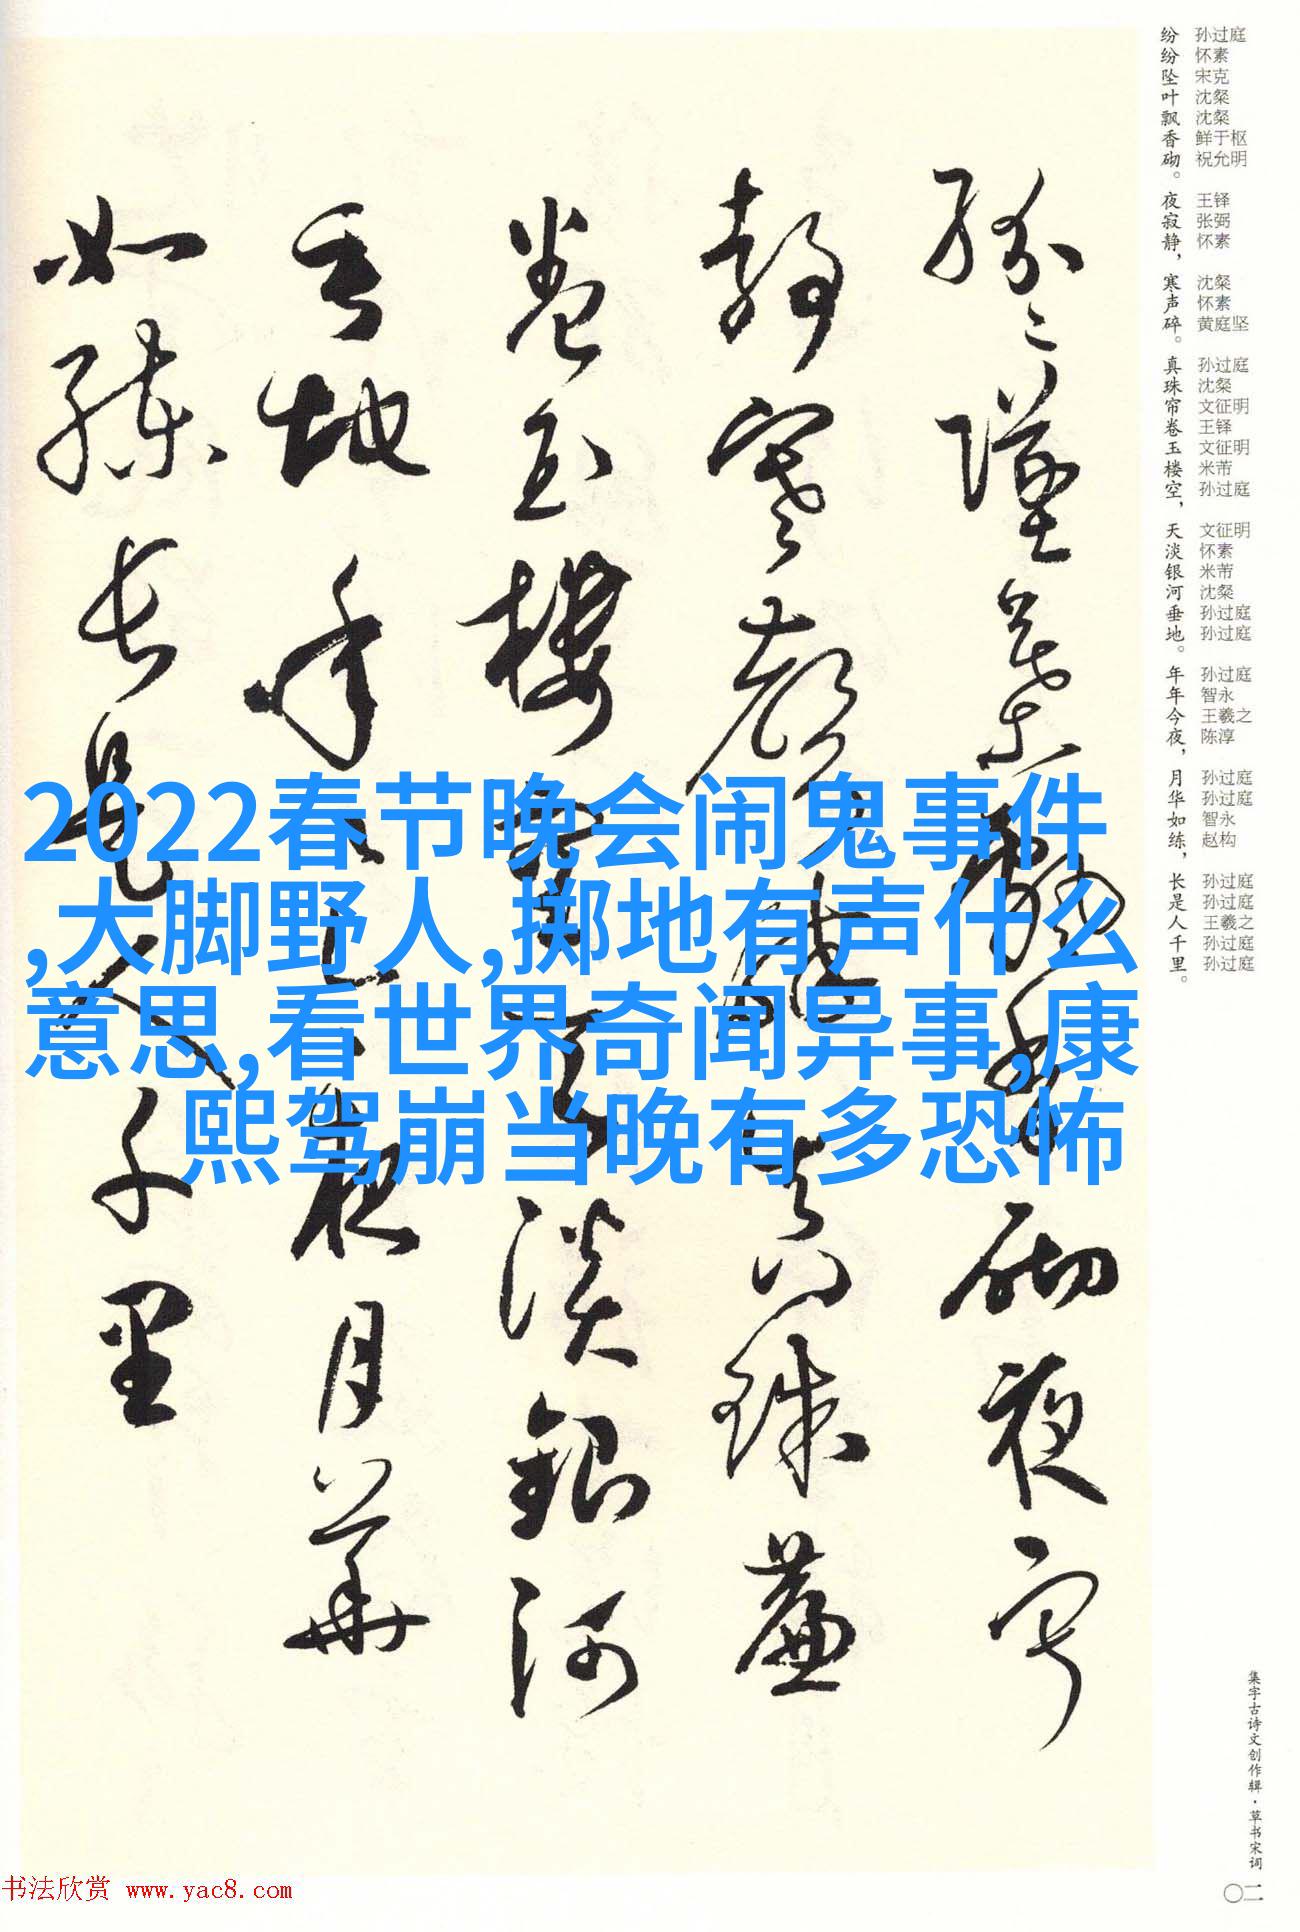 纷纷坠叶飘香砌。
夜寂静，
寒声碎。
真珠帘卷玉楼空，
天淡银河垂地。
年年今夜，
月华如练，
长是人千里。
孙过庭
怀素
宋克
沈粲
沈粲
鲜于枢
祝允明
王铎
张弼
怀素
沈粲
怀素
黄庭坚
孙过庭
沈粲
文征明
王铎
文征明
米芾
孙过庭
文征明
怀素
米芾
沈粲
孙过庭
孙过庭
孙过庭
智永
王羲之
陈淳
孙过庭
孙过庭
智永
赵构
孙过庭
孙过庭
王羲之
孙过庭
孙过庭
2022春节晚会闹鬼事件
,大脚野人,掷地有声什么
意思,看世界奇闻异事,康
熙驾崩当晚有多恐怖
集字古诗文创作辑·草书宋词
〇二
书法欣赏 www.yac8.com